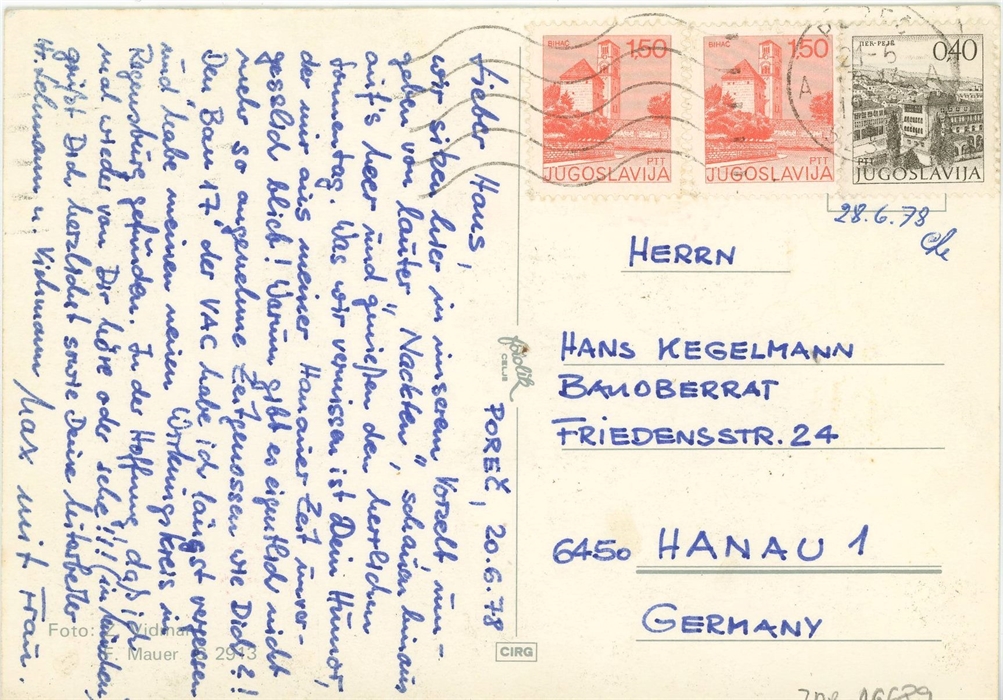 Poreč, 20.6.78
Lieber Hans,
wir sitzen hier in unserem Vorzelt um-
geben von lauter "Nackten", schauen hinaus
auf's Meer und genießen den herrlichen
Sonnentag. Was wir vermissen ist Dein Humor,
der mir aus meiner Hanauer Zeit unver-
gesslich blieb! Warum gibt es eigentlich nicht
mehr so angenehme Zeitgenossen wie Dich?!
Den Bau 17 der VAC habe ich längst vergessen
und habe meinen neuen Wirkungskreis in
Regensburg gefunden. In der Hoffnung, daß ich
mal wieder von Dir höre oder sehe!!! (in München)
grüßt Dich herzlichst sowie Deine Mitarbeiter
H. Lehmann u. Vidmann Max mit Frau.
Foto: Vidmar
F. Mauer 2913
fotolik
CELJE
CIRG
BIHAĆ 1,50
PTT
JUGOSLAVIJA
BIHAĆ 1,50
PTT
JUGOSLAVIJA
ПЕЋ-PEJË 0,40
PTT
JUGOSLAVIJA
A A
28.6.78
HERRN
HANS KEGELMANN
BAUOBERRAT
FRIEDENSSTR. 24
6450 HANAU 1
GERMANY